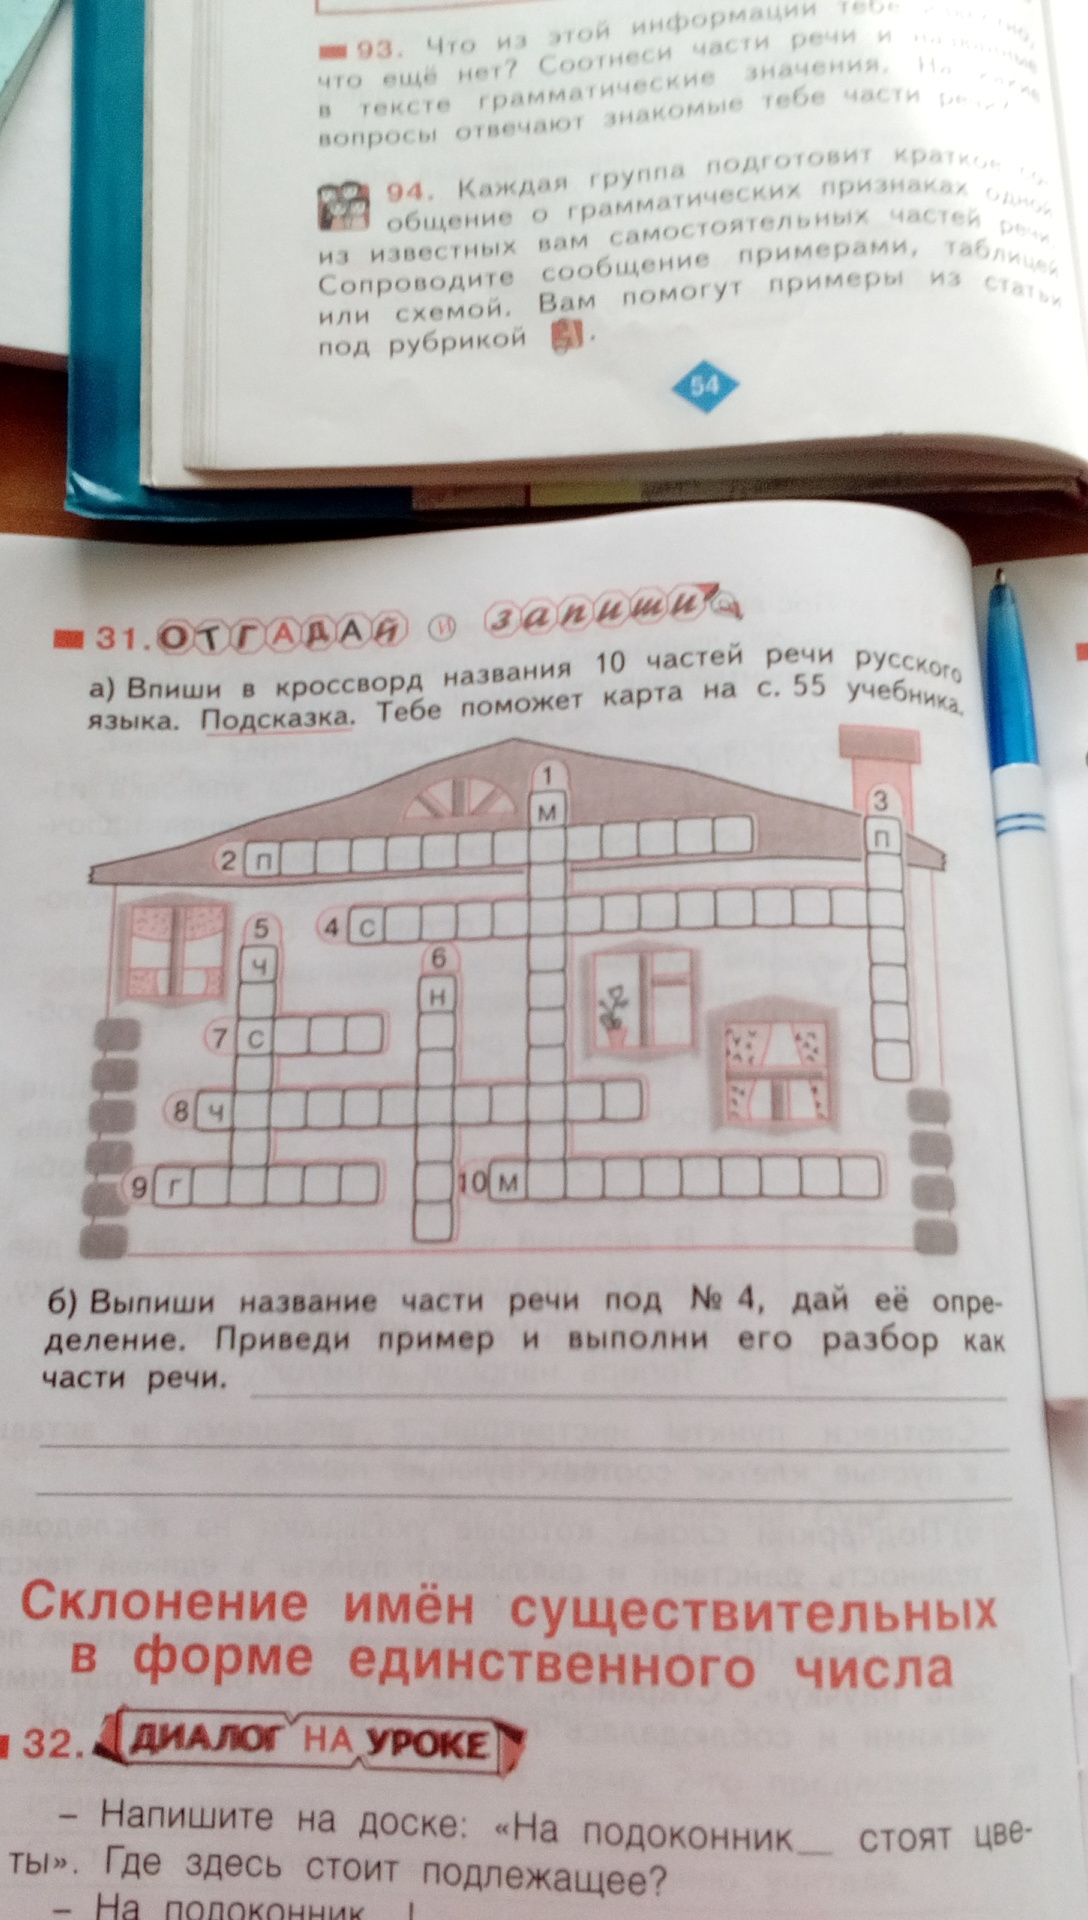 93. Что из этой информации тебе
что ещё нет? Соотнеси части речи и
в тексте грамматические значения.
вопросы отвечают знакомые тебе части
94. Каждая группа подготовит
общение о грамматических признаках одной
из известных вам самостоятельных частей речи.
Сопроводите сообщение примерами, таблицей
или схемой. Вам помогут примеры из статьи
под рубрикой .
54
31. ОТГАДАЙ И запиши
а) Впиши в кроссворд названия 10 частей речи русского
языка. Подсказка. Тебе поможет карта на с. 55 учебника.
1
М
3
П
2 П
5
4 С
Ч
6
Н
7 С
8 Ч
9 Г
10 М
б) Выпиши название части речи под № 4, дай её опре-
деление. Приведи пример и выполни его разбор как
части речи.
Склонение имён существительных
в форме единственного числа
32. ДИАЛОГ НА УРОКЕ
– Напишите на доске: «На подоконник__ стоят цве-
ты». Где здесь стоит подлежащее?
– На подоконник